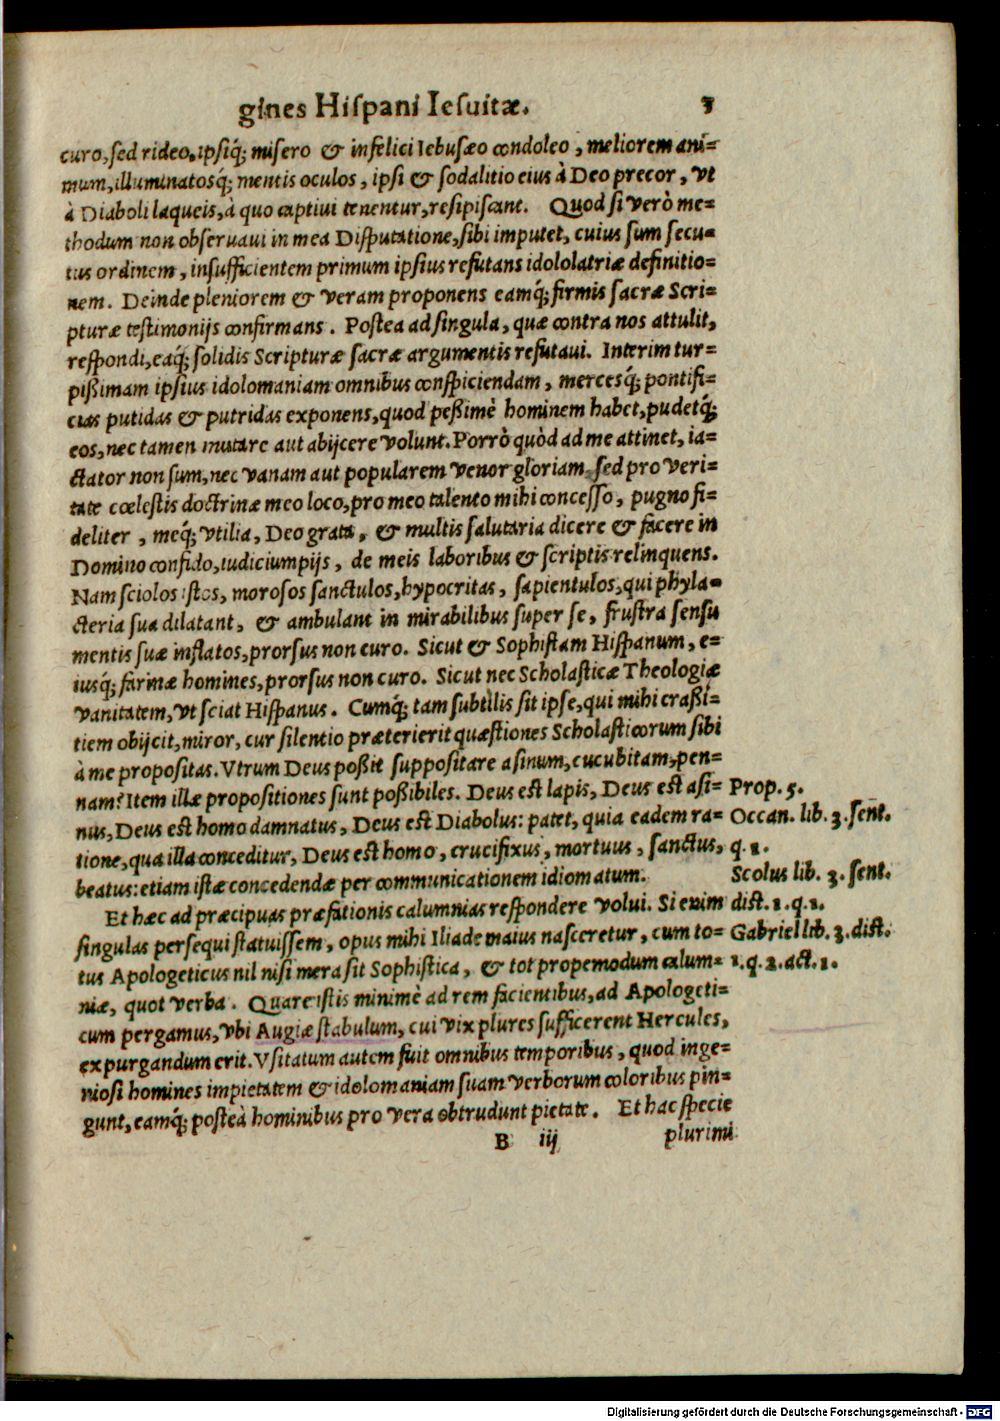 gines Hiſpani Ieſuitæ. 3
curo, ſed rideo, ipſiq́; miſero & infelici Iebuſæo condoleo, meliorem ani=
mum, illuminatosq́; mentis oculos, ipſi & ſodalitio eius à Deo precor, vt
à Diaboli laqueis, à quo captiui tenentur, reſipiſcant. Quod ſi verò me=
thodum non obſeruaui in mea Diſputatione, ſibi imputet, cuius ſum ſecu=
tus ordinem, inſufficientem primum ipſius refutans idololatriæ definitio=
nem. Deinde pleniorem & veram proponens eamq́; firmis ſacræ Scri=
pturæ teſtimonijs confirmans. Poſtea ad ſingula, quæ contra nos attulit,
reſpondi, eaq́; ſolidis Scripturæ ſacræ argumentis refutaui. Interim tur=
pißimam ipſius idolomaniam omnibus conſpiciendam, mercesq́; pontifi=
cias putidas & putridas exponens, quod peßimè hominem habet, pudetq́;
eos, nec tamen mutare aut abijcere volunt. Porrò quòd ad me attinet, ia=
ctator non ſum, nec vanam aut popularem venor gloriam, ſed pro veri=
tate cœleſtis doctrinæ meo loco, pro meo talento mihi conceſſo, pugno fi=
deliter, meq́; vtilia, Deo grata, & multis ſalutaria dicere & facere in
Domino confido, iudicium pijs, de meis laboribus & ſcriptis relinquens.
Nam ſciolos iſtos, moroſos ſanctulos, hypocritas, ſapientulos, qui phyla=
cteria ſua dilatant, & ambulant in mirabilibus ſuper ſe, fruſtra ſenſu
mentis ſuæ inflatos, prorſus non curo. Sicut & Sophiſtam Hiſpanum, e=
iusq́; farinæ homines, prorſus non curo. Sicut nec Scholaſticæ Theologiæ
vanitatem, vt ſciat Hiſpanus. Cumq́; tam ſubtilis ſit ipſe, qui mihi craßi=
tiem obijcit, miror, cur ſilentio præterierit quæſtiones Scholaſticorum ſibi
à me propoſitas. Vtrum Deus poßit ſuppoſitare aſinum, cucubitam, pen=
nam? Item illæ propoſitiones ſunt poßibiles. Deus eſt lapis, Deus eſt aſi= Prop. 5.
nus, Deus eſt homo damnatus, Deus eſt Diabolus: patet, quia eadem ra= Occan. lib. 3. ſent.
tione, qua illa conceditur, Deus eſt homo, crucifixus, mortuus, ſanctus, q. 1.
beatus: etiam iſtæ concedendæ per communicationem idiomatum. Scolus lib. 3. ſent.
Et hæc ad præcipuas præfationis calumnias reſpondere volui. Si enim diſt. 1. q. 1.
ſingulas perſequi ſtatuiſſem, opus mihi Iliade maius naſceretur, cum to= Gabriel lib. 3. diſt.
tus Apologeticus nil niſi mera ſit Sophiſtica, & tot propemodum calum= 1. q. 2. act. 1.
niæ, quot verba. Quare iſtis minimè ad rem facientibus, ad Apologeti=
cum pergamus, vbi Augiæ ſtabulum, cui vix plures ſufficerent Hercules,
expurgandum erit. Vſitatum autem fuit omnibus temporibus, quod inge=
nioſi homines impietatem & idolomaniam ſuam verborum coloribus pin=
gunt, eamq́; poſteà hominibus pro vera obtrudunt pietate. Et hac ſpecie
B iij plurimi
Digitalisierung gefördert durch die Deutsche Forschungsgemeinschaft - DFG